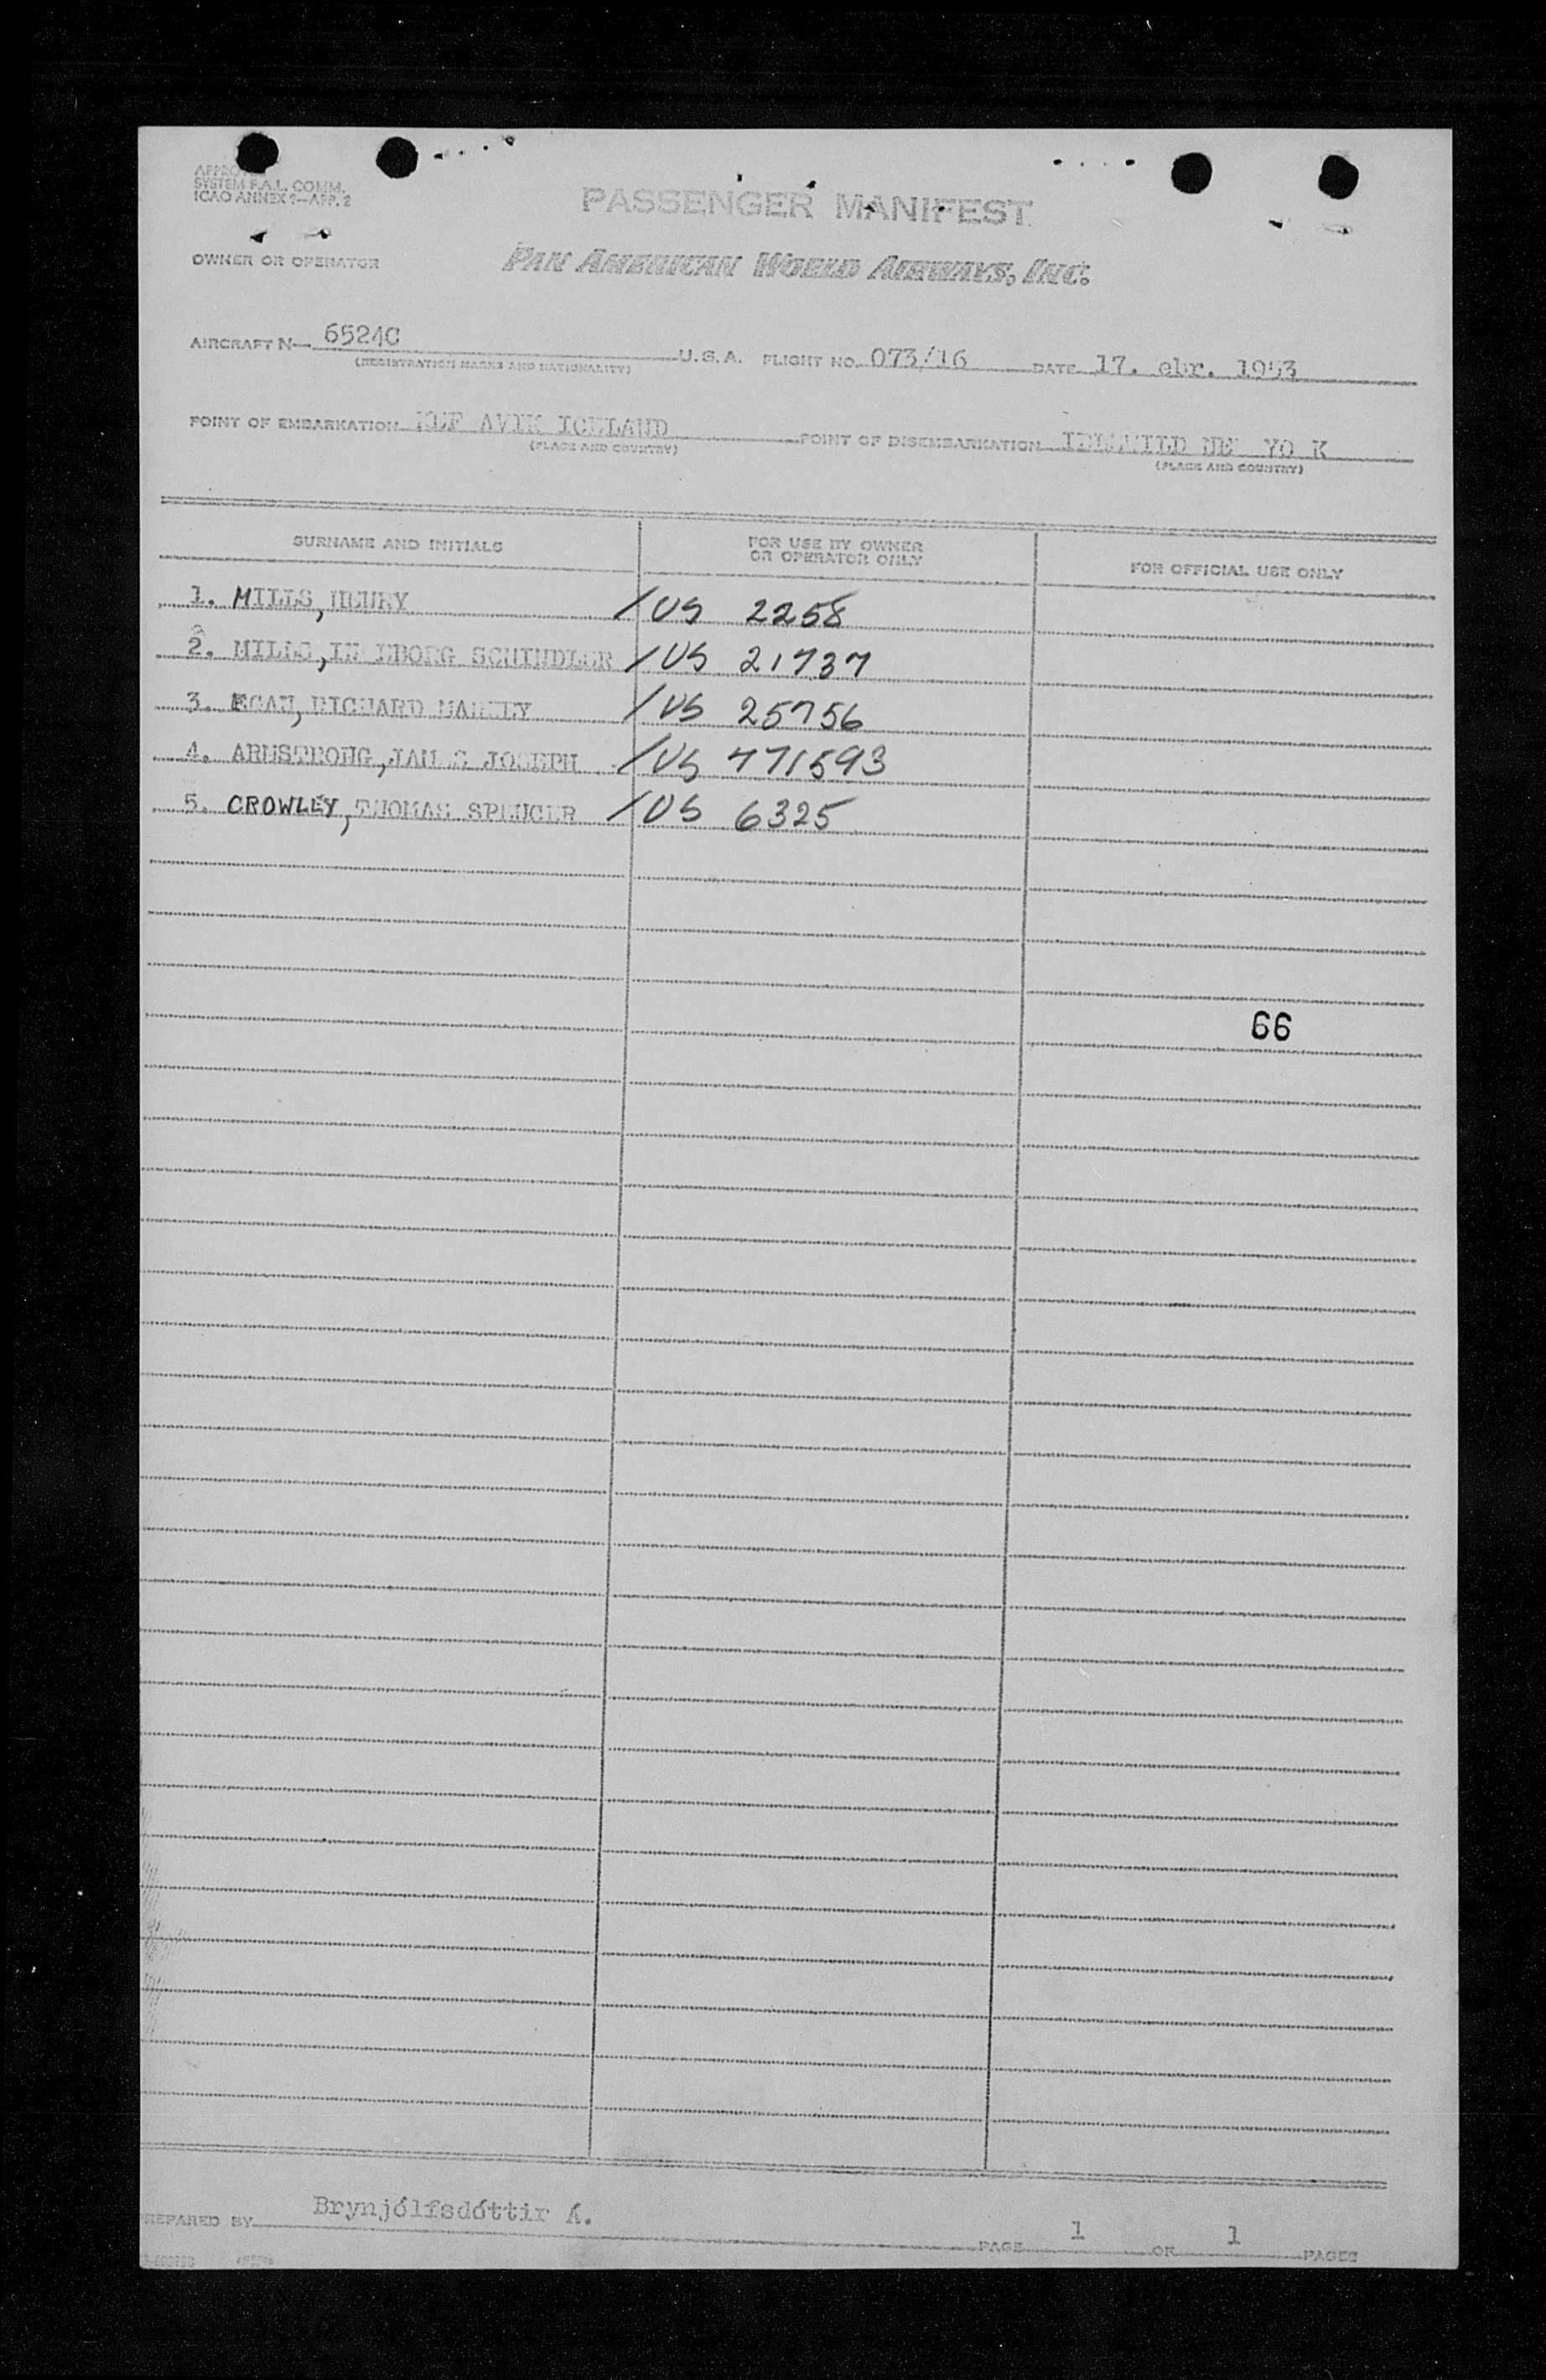 SYSTEM F.A.L. COMM.
ICAO ANNEX 9—APP. 2
PASSENGER MANIFEST
OWNER OR OPERATOR
PAN AMERICAN WORLD AIRWAYS, INC.
AIRCRAFT N— 6524C U.S.A. FLIGHT NO. 073/16 DATE 17. ebr. 1953
(REGISTRATION MARKS AND NATIONALITY)
POINT OF EMBARKATION KEF AVIK ICELAND POINT OF DISEMBARKATION IDLEWILD NE YO K
(PLACE AND COUNTRY) (PLACE AND COUNTRY)
SURNAME AND INITIALS FOR USE BY OWNER OR OPERATOR ONLY FOR OFFICIAL USE ONLY
1. MILLS, HENRY / US 2258
2. MILLS, IN EBORG SCHINDLER / US 21737
3. EGAN, RICHARD / US 25756
4. ARMSTRONG, JAMES JOSEPH / US 771593
5. CROWLEY, THOMAS SPENCER / US 6325
66
PREPARED BY Brynjólfsdóttir Á.
PAGE 1 OF 1 PAGES